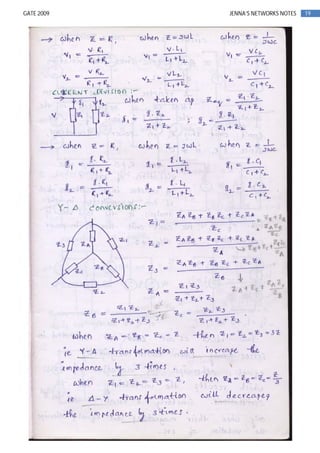 GATE 2009 JENNA'S NETWORKS NOTES 19
→ when Z = R, when Z = jωL when Z = 1/jωC
V₁ = V·R₁/(R₁+R₂) V₁ = V·L₁/(L₁+L₂) V₁ = VC₂/(C₁+C₂)
V₂ = VR₂/(R₁+R₂) V₂ = VL₂/(L₁+L₂) V₂ = VC₁/(C₁+C₂)
CURRENT DIVISION :-
when taken as Zeq = Z₁·Z₂/(Z₁+Z₂)
V Z₁ Z₂ I₁ = I·Z₂/(Z₁+Z₂) ; I₂ = I·Z₁/(Z₁+Z₂)
→ when Z = R, when Z = jωL when Z = 1/jωC
I₁ = I·R₂/(R₁+R₂) I₁ = I·L₂/(L₁+L₂) I₁ = I·C₁/(C₁+C₂)
I₂ = I·R₁/(R₁+R₂) I₂ = I·L₁/(L₁+L₂) I₂ = I·C₂/(C₁+C₂)
Y-Δ conversions:-
Z₁ = (ZAZB + ZBZC + ZCZA)/ZC
Z₃ ZA Z₁ Z₂ = (ZAZB + ZBZC + ZCZA)/ZA
ZC ZB Z₃ = (ZAZB + ZBZC + ZCZA)/ZB
Z₂ ZA = Z₁Z₃/(Z₁+Z₂+Z₃)
ZB = Z₁Z₂/(Z₁+Z₂+Z₃) ZC = Z₂Z₃/(Z₁+Z₂+Z₃)
when ZA = ZB = ZC = Z -then Z₁ = Z₂ = Z₃ = 3Z
ie Y-Δ transformation will increase the
impedance by 3 times.
when Z₁ = Z₂ = Z₃ = Z, -then ZA = ZB = ZC = Z/3
ie Δ-Y transformation will decreases
the impedance by 3 times.